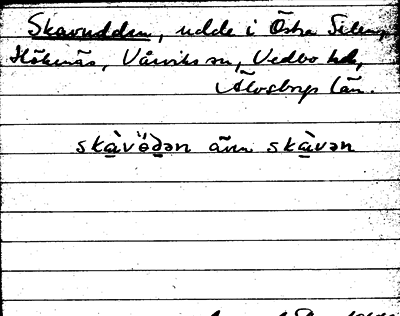 Skavudden, udde i Östra Silen,
Höknäs, Vårviks sn, Vedbo hd,
Älvsborgs län.
skàvö̀dən även skàvən